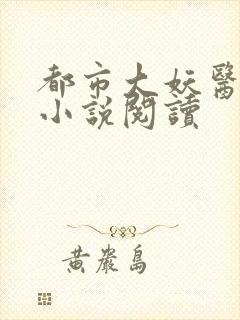 都市大妖醫
小説閱讀
黃巖島